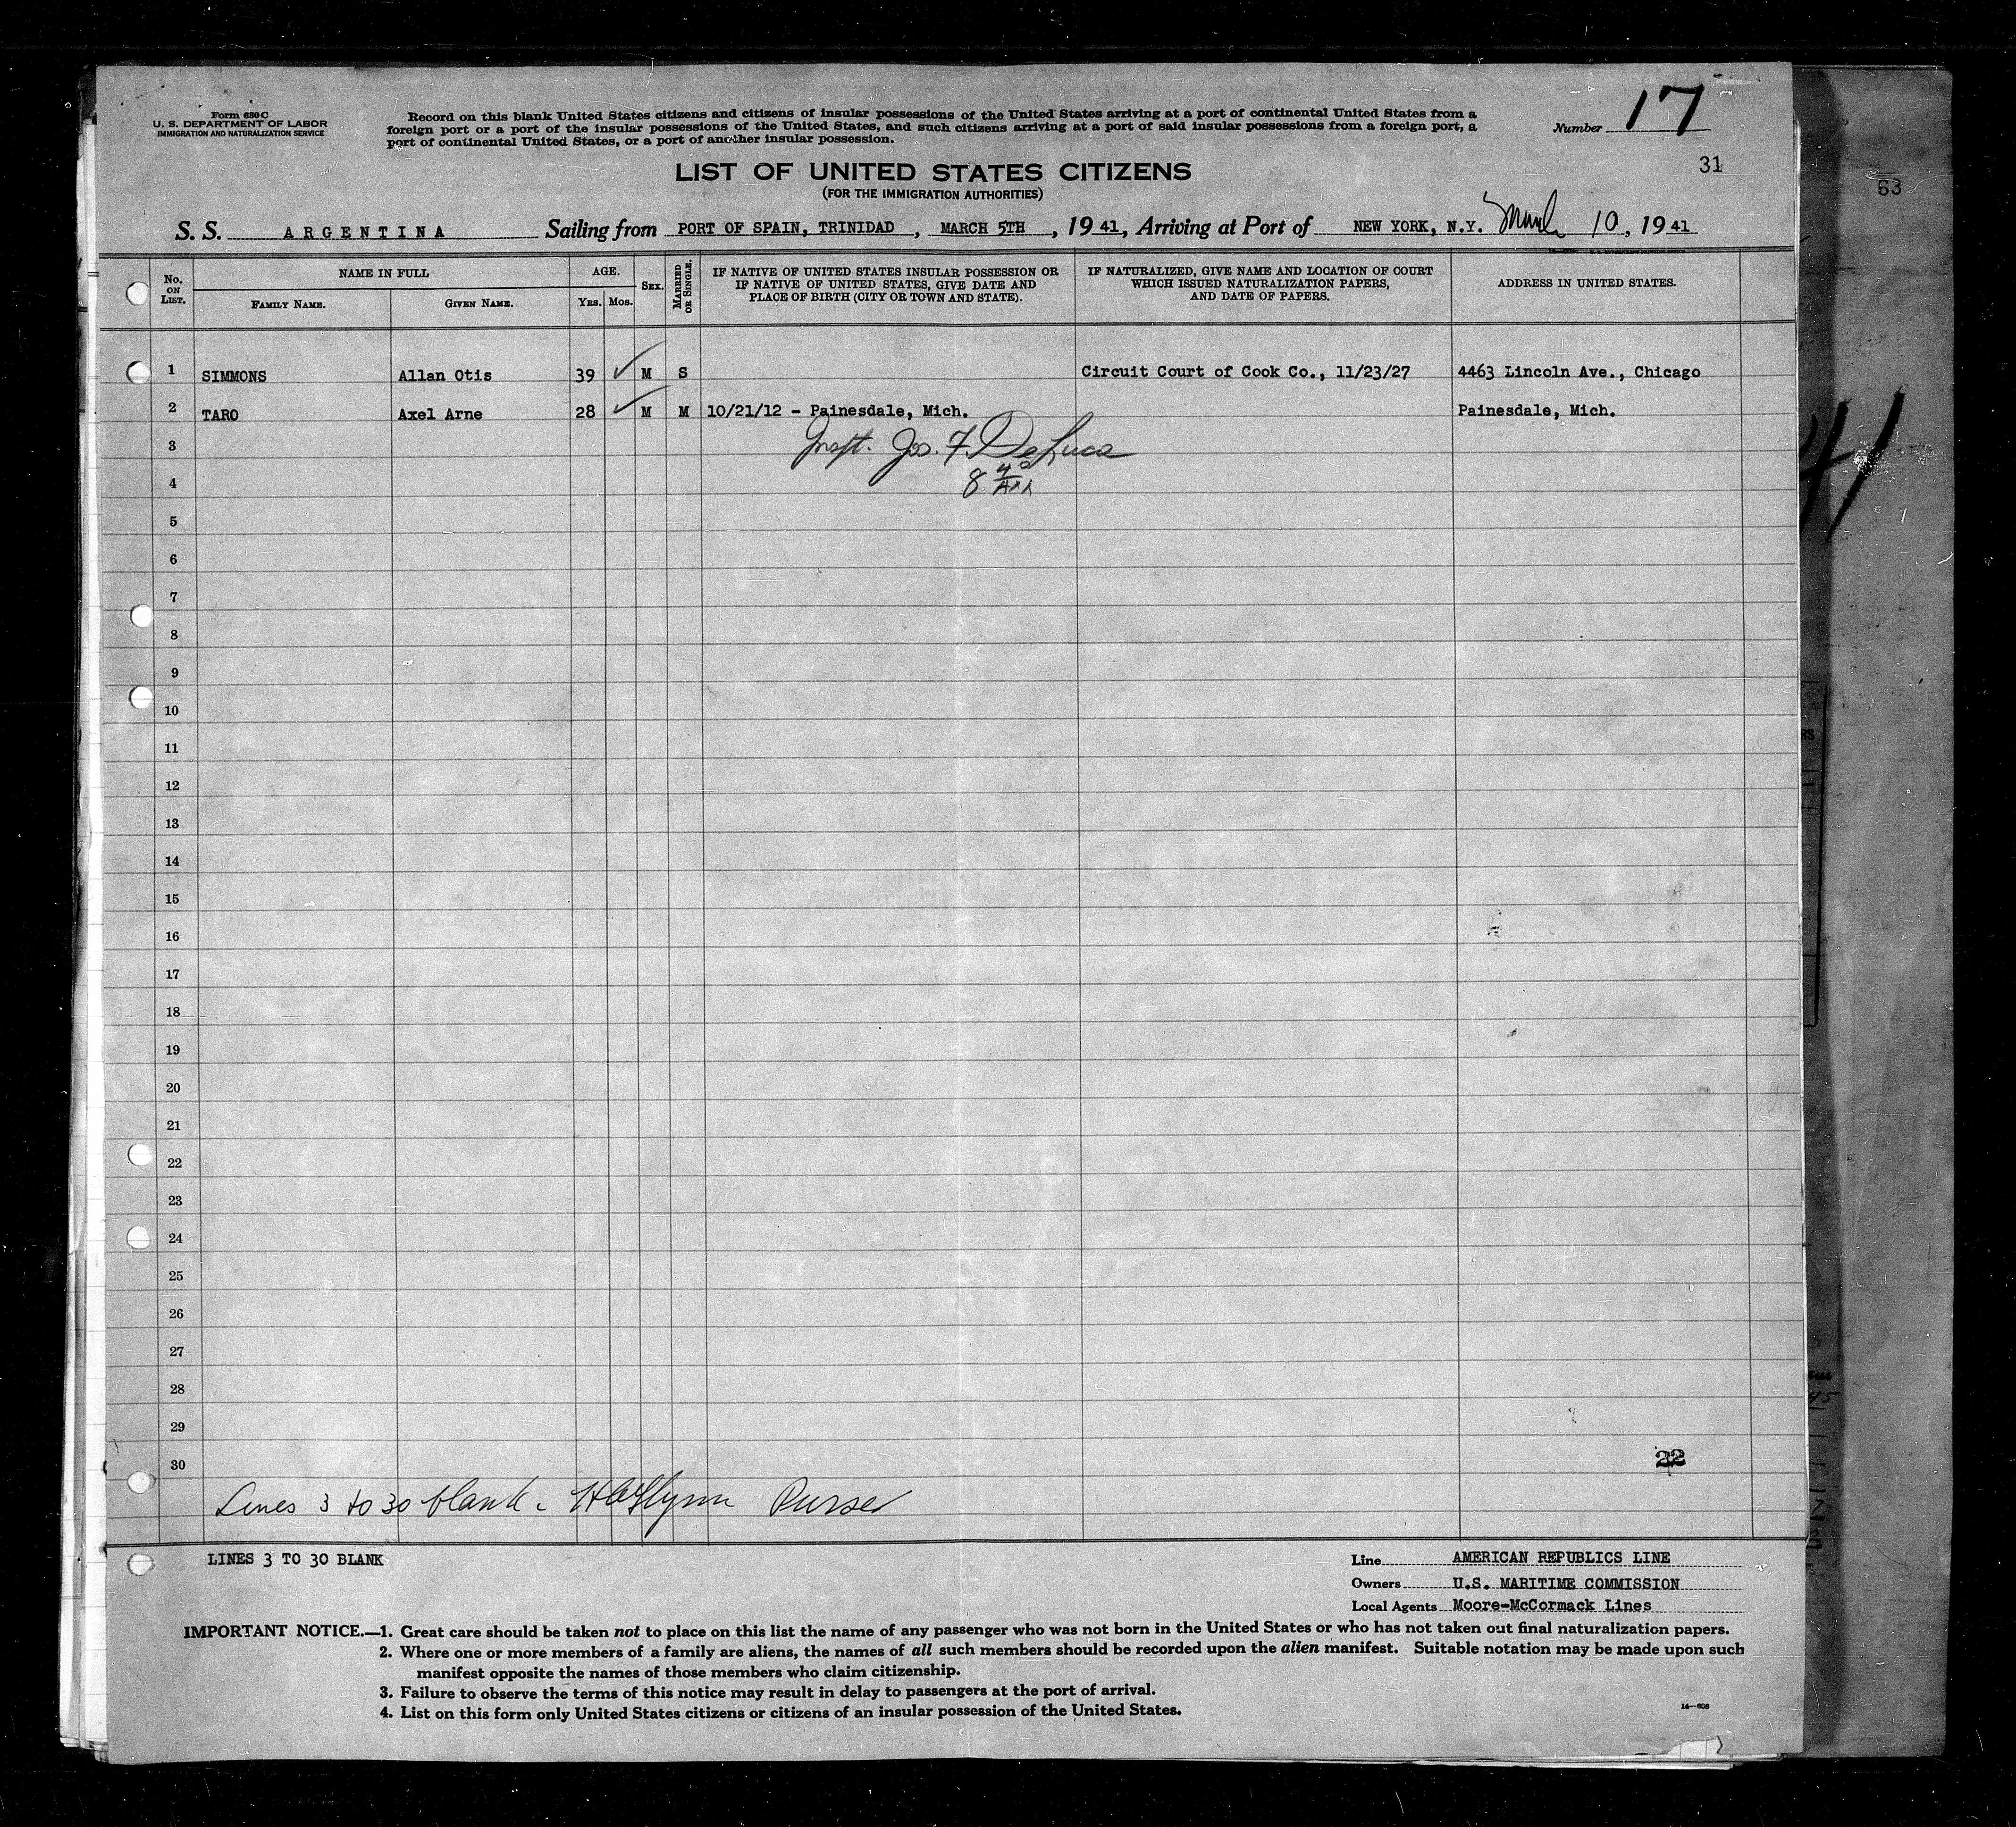 Form 630 C
U. S. DEPARTMENT OF LABOR
IMMIGRATION AND NATURALIZATION SERVICE
Record on this blank United States citizens and citizens of insular possessions of the United States arriving at a port of continental United States from a
foreign port or a port of the insular possessions of the United States, and such citizens arriving at a port of said insular possessions from a foreign port, a
port of continental United States, or a port of another insular possession.
Number 17
31
63
LIST OF UNITED STATES CITIZENS
(FOR THE IMMIGRATION AUTHORITIES)
S. S. ARGENTINA Sailing from PORT OF SPAIN, TRINIDAD , MARCH 5TH , 19 41, Arriving at Port of NEW YORK, N.Y. March 10, 19 41
No. ON LIST. NAME IN FULL FAMILY NAME. GIVEN NAME. AGE. YRS. MOS. SEX. MARRIED OR SINGLE. IF NATIVE OF UNITED STATES INSULAR POSSESSION OR IF NATIVE OF UNITED STATES, GIVE DATE AND PLACE OF BIRTH (CITY OR TOWN AND STATE). IF NATURALIZED, GIVE NAME AND LOCATION OF COURT WHICH ISSUED NATURALIZATION PAPERS, AND DATE OF PAPERS. ADDRESS IN UNITED STATES.
1 SIMMONS Allan Otis 39 ✓ M S Circuit Court of Cook Co., 11/23/27 4463 Lincoln Ave., Chicago
2 TARO Axel Arne 28 ✓ M M 10/21/12 - Painesdale, Mich. Painesdale, Mich.
3 Inspt. Jos. F. DeLuca
4 8
5
6
7
8
9
10
11
12
13
14
15
16
17
18
19
20
21
22
23
24
25
26
27
28
29
30
22
Lines 3 to 30 blank - Flynn Purser
LINES 3 TO 30 BLANK
Line AMERICAN REPUBLICS LINE
Owners U.S. MARITIME COMMISSION
Local Agents Moore-McCormack Lines
IMPORTANT NOTICE.—1. Great care should be taken not to place on this list the name of any passenger who was not born in the United States or who has not taken out final naturalization papers.
2. Where one or more members of a family are aliens, the names of all such members should be recorded upon the alien manifest. Suitable notation may be made upon such
manifest opposite the names of those members who claim citizenship.
3. Failure to observe the terms of this notice may result in delay to passengers at the port of arrival.
4. List on this form only United States citizens or citizens of an insular possession of the United States.
14—608